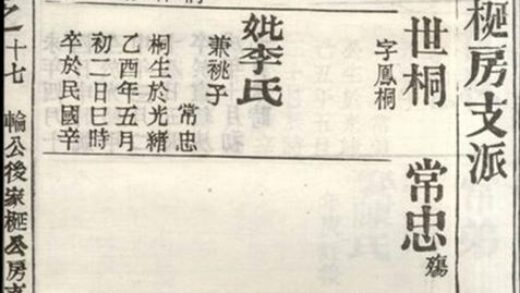 樾房支派
世桐
字鳳桐
常忠
殤
妣李氏
兼祧子
常忠
桐生於光緒
乙酉年五月
初二日巳時
卒於民國辛
十七
輪公後家樾公房